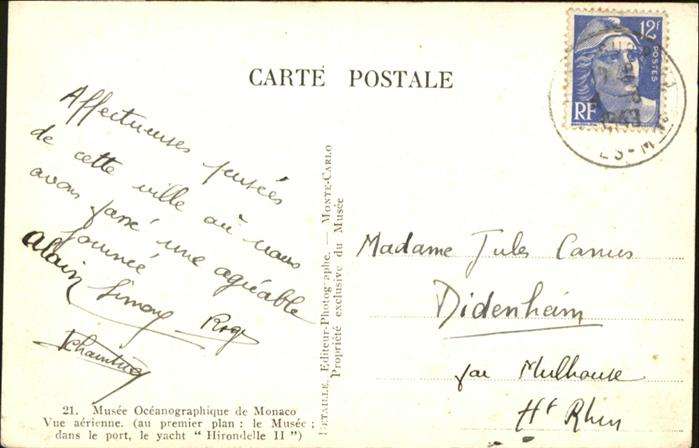 CARTE POSTALE
12F
POSTES
RF
Affectueuses pensées
de cette ville où nous
avons passé une agréable
journée
Alain Simone
21. Musée Océanographique de Monaco
Vue aérienne. (au premier plan : le Musée ;
dans le port, le yacht “ Hirondelle II ”)
DETAILLE, Editeur-Photographe. — MONTE-CARLO
Propriété exclusive du Musée
Madame Jules Camus
Didenheim
par Mulhouse
Ht Rhin